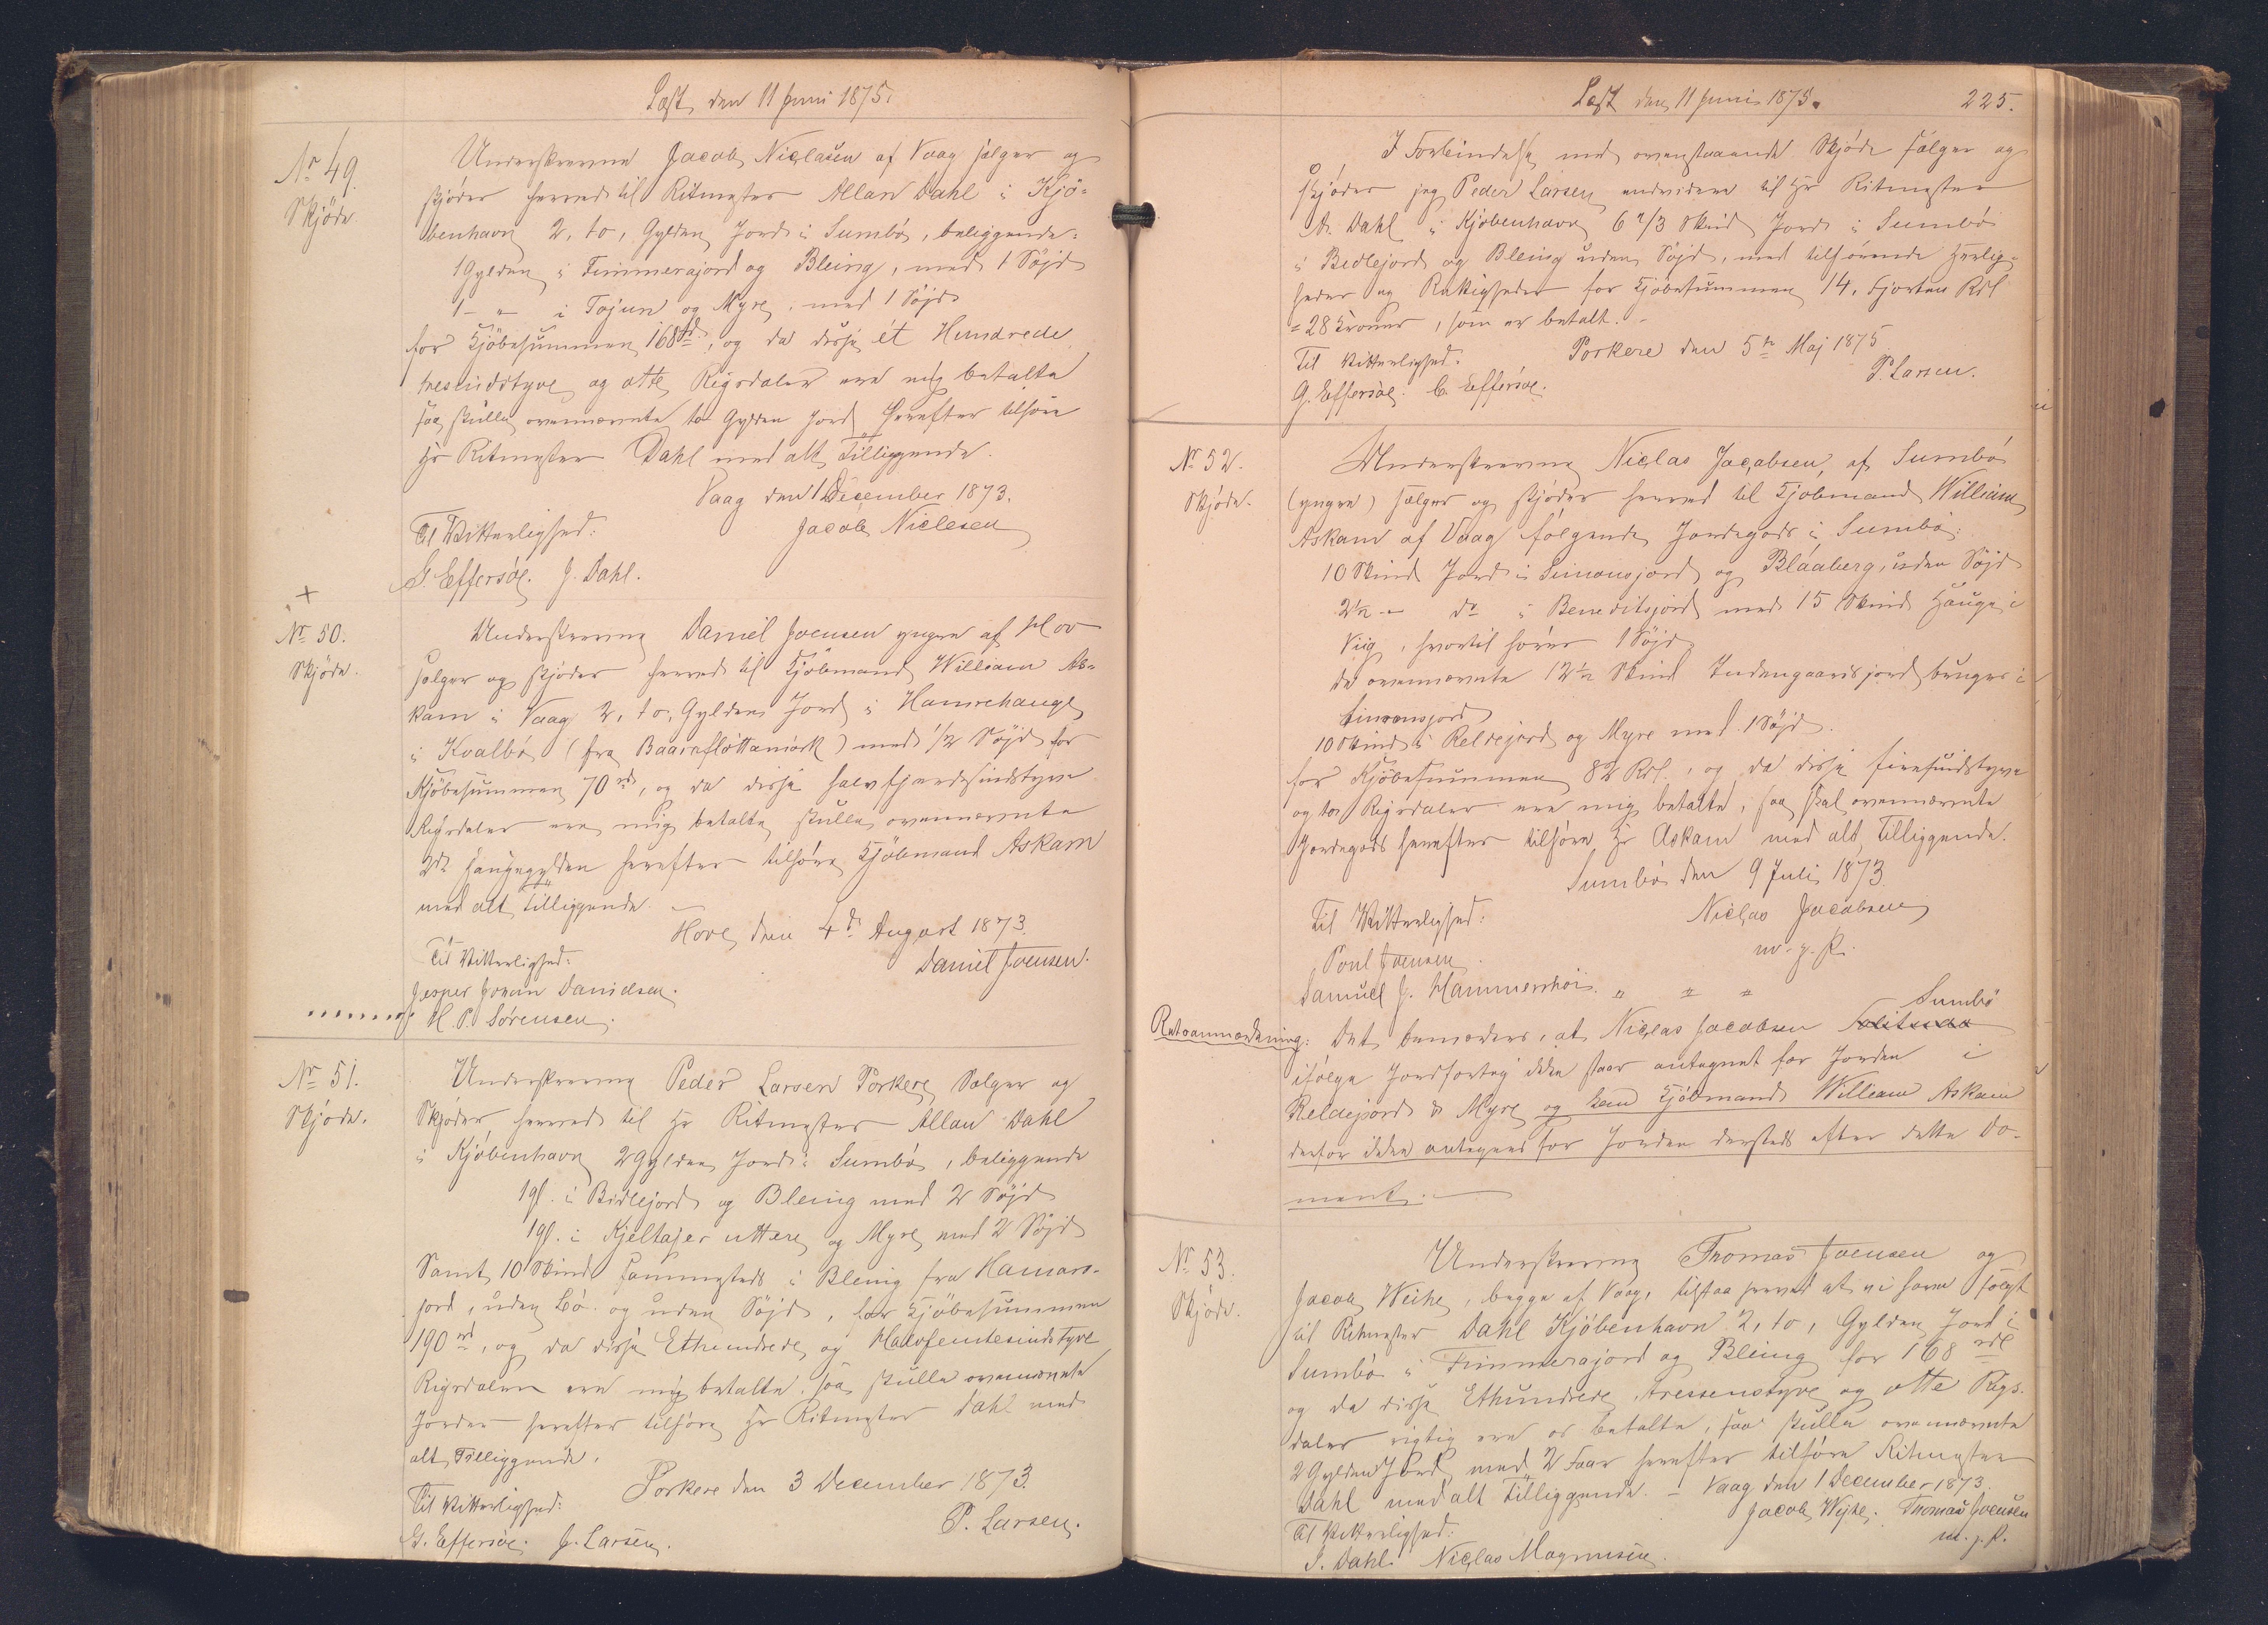 Læst den 11 Juni 1875.
Nr 49.
Skjöde.
Underskrevne Jacob Niclasen af Vaag sælger og
skjöder herved til Ritmester Allan Dahl i Kjö-
benhavn 2, to, Gylden Jord i Sumbö, beliggende:
1 Gylden i Fimmerajord og Bleing, med 1 Söjd
1 - " - i Tojun og Myre, med 1 Söjd
for Kjöbesummen 168 rd, og da disse ét Hundrede
tresindstyve og otte Rigsdaler ere mig betalte
saa skulle ovennævnte to Gylden Jord herefter tilhöre
Hr Ritmester Dahl med alt Tilliggende.
Vaag den 1 December 1873.
Til Vitterlighed: Jacob Niclesen
G. Effersöe. J. Dahl.
+
Nr 50.
Skjöde.
Underskrevne Daniel Joensen yngre af Hov
sælger og skjöder herved til Kjöbmand William As-
kam i Vaag 2, to, Gylden Jord i Hamrehauge
i Kvalbö (fra Baaraflöttamörk) med 1/2 Söjd for
Kjöbesummen 70 rd, og da disse halvfjerdsindstyve
Rigsdaler ere mig betalte skulle ovennævnte
2de Haugegylden herefter tilhöre Kjöbmand Askam
med alt Tilliggende. -
Hove den 4de August 1873.
Til Vitterlighed: Daniel Joensen.
Jesper Joen Danielsen.
H. P. Sörensen.
Nr 51.
Skjöde.
Underskrevne Peder Larsen Porkere, Sælger og
Skjöder herved til Hr Ritmester Allan Dahl
i Kjöbenhavn 2 Gylden Jord i Sumbö, beliggende
1 gl. i Bidlejord og Bleing med 2 Söjd
1 gl. i Kjeltajer uttere og Myre med 2 Söjd
Samt 10 Skind sammesteds i Bleing fra Hamars-
jord, uden Bö og uden Söjd, for Kjöbesummen
190 rd, og da disse Ethundrede og Halvfemtesindstyve
Rigsdaler ere mig betalte, saa skulle ovennævnte
Jorder herefter tilhöre Hr Ritmester Dahl med
alt Tilliggende.
Porkere den 3 December 1873.
Til Vitterlighed: P. Larsen.
G. Effersöe. J. Larsen.
Læst den 11 Juni 1875. 225.
I Forbindelse med ovenstaaende Skjöde sælger og
skjöder jeg Peder Larsen endvidere til Hr Ritmester
A. Dahl i Kjöbenhavn 6 2/3 Skind Jord i Sumbö
i Bidlejord og Bleing uden Söjd, med tilhörende Herlig-
heder og Rettigheder for Kjöbesummen 14, Fjorten Rdl
= 28 Kroner, som er betalt. -
Porkere den 5te Maj 1875
Til Vitterlighed: P. Larsen.
G. Effersöe. C. Effersöe.
Nr 52.
Skjöde.
Underskrevne Niclas Jacobsen, af Sumbö
(yngre) sælger og skjöder herved til Kjöbmand William
Askam af Vaag fölgende Jordegods i Sumbö:
10 Skind Jord i Simonsjord og Blåaberg, uden Söjd
2 1/2 - do i Beneditsjord med 15 Skind Hauge i
Viig, hvortil hörer 1 Söjd
da ovennævnte 12 1/2 Skind Indengaardsjord bruges i
Simonsjord
10 Skind i Reldejord og Myre med 1 Söjd.
for Kjöbesummen 82 Rdl., og da disse firesindstyve
og to Rigsdaler ere mig betalte, saa skal ovennævnte
Jordegods herefter tilhöre Hr Askam med alt Tilliggende.
Sumbö den 9 Juli 1873
Til Vitterlighed: Niclas Jacobsen
m. f. P.
Poul Joensen
Samuel J. Hammershöi. " " "
Sumbö
Retsanmærkning: Det bemærkes, at Niclas Jacobsen
ifölge Jordfortegn ikke staar antegnet for Jorden i
Reldejord & Myre og kan Kjöbmand William Askam
derfor ikke antegnes for Jorden dersteds efter dette Do-
ment. -
Nr 53.
Skjöde.
Underskrevne Thomas Joensen og
Jacob Weihe, begge af Vaag, tilstaa herved at vi have solgt
til Ritmester Dahl Kjöbenhavn 2, to, Gylden Jord i
Sumbö i Fimmerajord og Bleing for 168 rdl
og da disse Ethundrede tressenstyve og otte Rigs-
daler rigtig ere os betalte, saa skulle ovennævnte
2 Gylden Jord med 2 Faar herefter tilhöre Ritmester
Dahl med alt Tilliggende. - Vaag den 1 December 1873.
Til Vitterlighed: Jacob Weihe. Thomas Joensen
m. f. P.
J. Dahl. Niclas Magnussen.